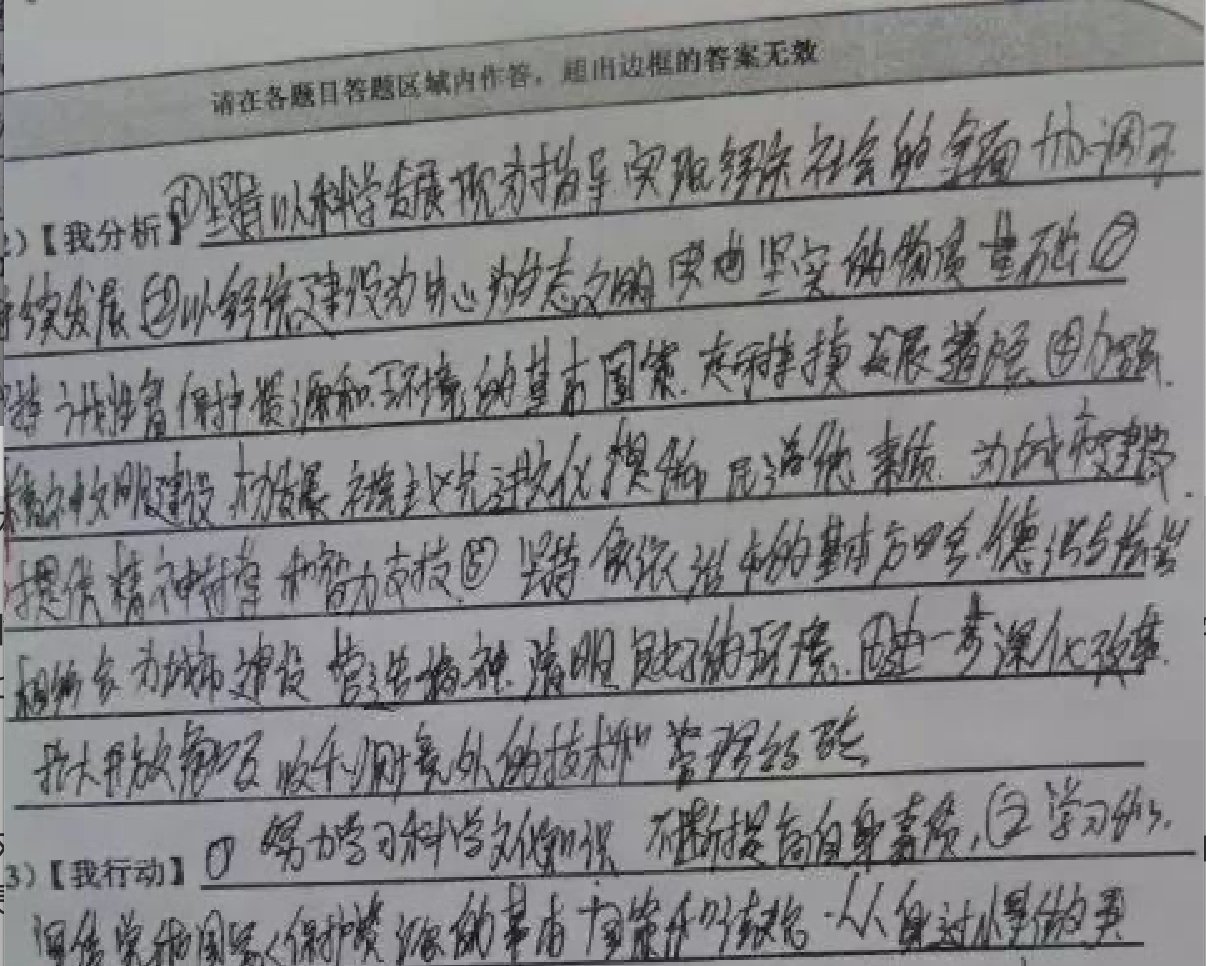 请在各题目答题区域内作答,超出边框的答案无效
2)【我分析】①坚持以科学发展观为指导 实现经济社会的全面协调可
持续发展 ②以经济建设为中心 为生态文明 奠定坚实的物质基础 ③
持计划生育保护资源和环境的基本国策. 走可持续发展道路 ④加强
精神文明建设 大力发展社会主义先进文化 提高 民道德素质. 为城市建设
提供精神支撑和智力支持 ⑤坚持依法治市的基本方略. 德治与法治
相结合 为城市建设营造 清明良好的环境. ⑥进一步深化改革.
扩大开放 吸收利用境外的技术和管理经验
3)【我行动】① 努力学习科学文化知识 不断提高自身素质, ② 学习
国家 保护资源的基本国策和 从身边小事做